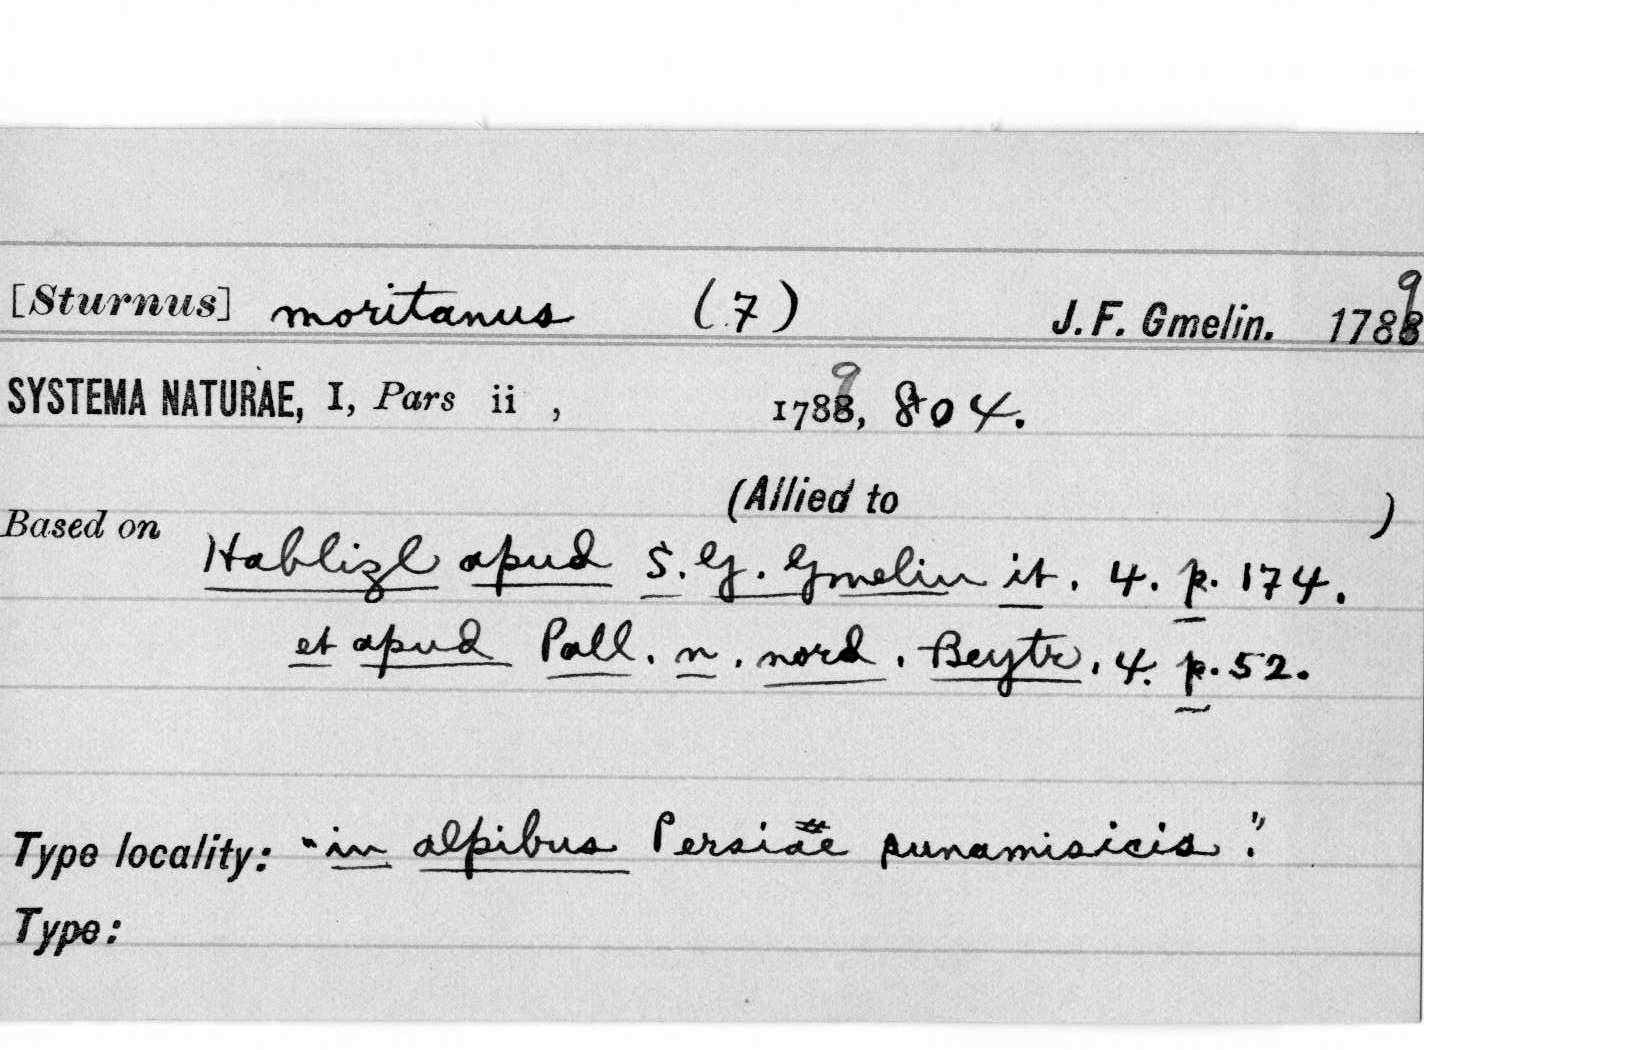 [Sturnus] moritanus (7) J. F. Gmelin. 1789
SYSTEMA NATURAE, I, Pars ii , 1789, 804.
(Allied to )
Based on Hablizl apud S. G. Gmelin it. 4. p. 174.
et apud Pall. n. nord. Beytr. 4. p. 52.
Type locality: "in alpibus Persiae punamisicis."
Type: